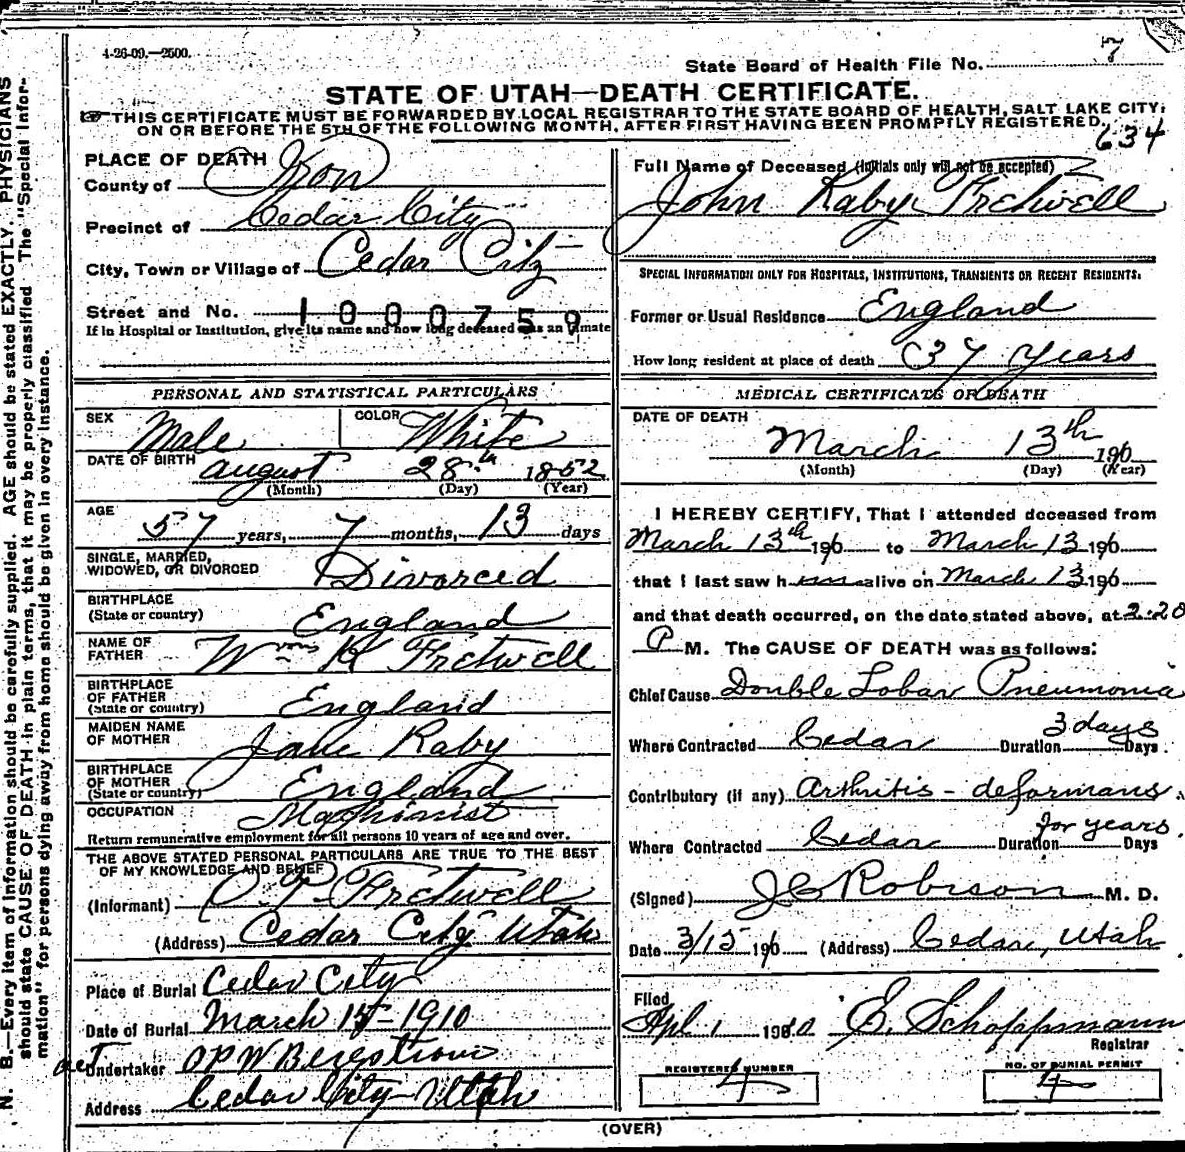 4-26-09.—2500.
7
State Board of Health File No.
STATE OF UTAH—DEATH CERTIFICATE.
THIS CERTIFICATE MUST BE FORWARDED BY LOCAL REGISTRAR TO THE STATE BOARD OF HEALTH, SALT LAKE CITY,
ON OR BEFORE THE 5TH OF THE FOLLOWING MONTH, AFTER FIRST HAVING BEEN PROMPTLY REGISTERED.
634
N. B.—Every item of information should be carefully supplied. AGE should be stated EXACTLY. PHYSICIANS
should state CAUSE OF DEATH in plain terms, that it may be properly classified. The "Special Infor-
mation" for persons dying away from home should be given in every instance.
PLACE OF DEATH
County of Iron
Precinct of Cedar City
City, Town or Village of Cedar City
Street and No. 1000759
If in Hospital or Institution, give its name and how long deceased was an inmate
Full Name of Deceased (Initials only will not be accepted)
John Raby Fretwell
SPECIAL INFORMATION ONLY FOR HOSPITALS, INSTITUTIONS, TRANSIENTS OR RECENT RESIDENTS.
Former or Usual Residence England
How long resident at place of death 37 years
PERSONAL AND STATISTICAL PARTICULARS
SEX Male COLOR White
DATE OF BIRTH august 28th 1852
(Month) (Day) (Year)
AGE 57 years, 7 months, 13 days
SINGLE, MARRIED,
WIDOWED, OR DIVORCED Divorced
BIRTHPLACE
(State or country) England
NAME OF
FATHER Wm K Fretwell
BIRTHPLACE
OF FATHER
(State or country) England
MAIDEN NAME
OF MOTHER Jane Raby
BIRTHPLACE
OF MOTHER
(State or country) England
OCCUPATION Machinist
Return remunerative employment for all persons 10 years of age and over.
THE ABOVE STATED PERSONAL PARTICULARS ARE TRUE TO THE BEST
OF MY KNOWLEDGE AND BELIEF
(Informant) Fretwell
(Address) Cedar City Utah
Place of Burial Cedar City
Date of Burial March 15 - 1910
act Undertaker OPW Bergstrom
Address Cedar City - Utah
MEDICAL CERTIFICATE OF DEATH
DATE OF DEATH
March 13th 190
(Month) (Day) (Year)
I HEREBY CERTIFY, That I attended deceased from
March 13th 190 to March 13 190
that I last saw him alive on March 13 190
and that death occurred, on the date stated above, at 2:20
P M. The CAUSE OF DEATH was as follows:
Chief Cause Double Lobar Pneumonia
Where Contracted Cedar Duration 3 days Days
Contributory (if any) Arthritis - deformans
Where Contracted Cedar Duration for years. Days
(Signed) J C Robison M. D.
Date 3/15 190 (Address) Cedar, Utah
Filed
Apl 1 1910 E. Schoppmann
Registrar
REGISTERED NUMBER
4
NO. OF BURIAL PERMIT
4
(OVER)